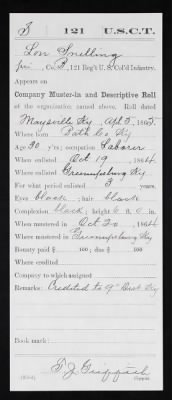 S 121 U.S.C.T.
Lon Snelling
Pri, Co. B, 121 Reg't U. S. Col'd Infantry.
Appears on
Company Muster-in and Descriptive Roll
of the organization named above. Roll dated
Maysville Ky, Apl 5, 1865.
Where born Bath Co, Ky
Age 30 y'rs; occupation Laborer
When enlisted Oct 19, 1864
Where enlisted Greenupsburg Ky
For what period enlisted 3 years.
Eyes black; hair black
Complexion black; height 6 ft. 0 in.
When mustered in Oct 20, 1864
Where mustered in Greenupsburg Ky
Bounty paid $ 100; due $ 100
Where credited
Company to which assigned
Remarks: Credited to 9" Dist Ky
Book mark:
Copyist.